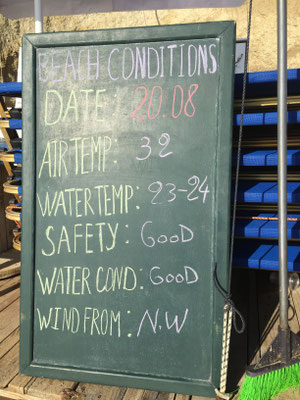 BEACH CONDITIONS
DATE: 20.08
AIR TEMP: 32
WATER TEMP: 23-24
SAFETY: GOOD
WATER COND: GOOD
WIND FROM: N.W